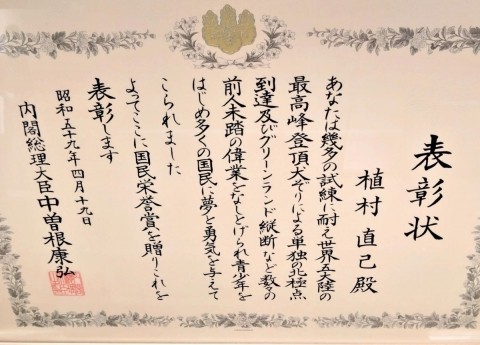 表彰状
植村直己殿
あなたは幾多の試練に耐え世界五大陸の
最高峰登頂犬ぞりによる単独の北極点
到達及びグリーンランド縦断など数々の
前人未踏の偉業をなしとげられ青少年を
はじめ多くの国民に夢と勇気を与えて
こられました
よってここに国民栄誉賞を贈りこれを
表彰します
昭和五十九年四月十九日
内閣総理大臣中曽根康弘